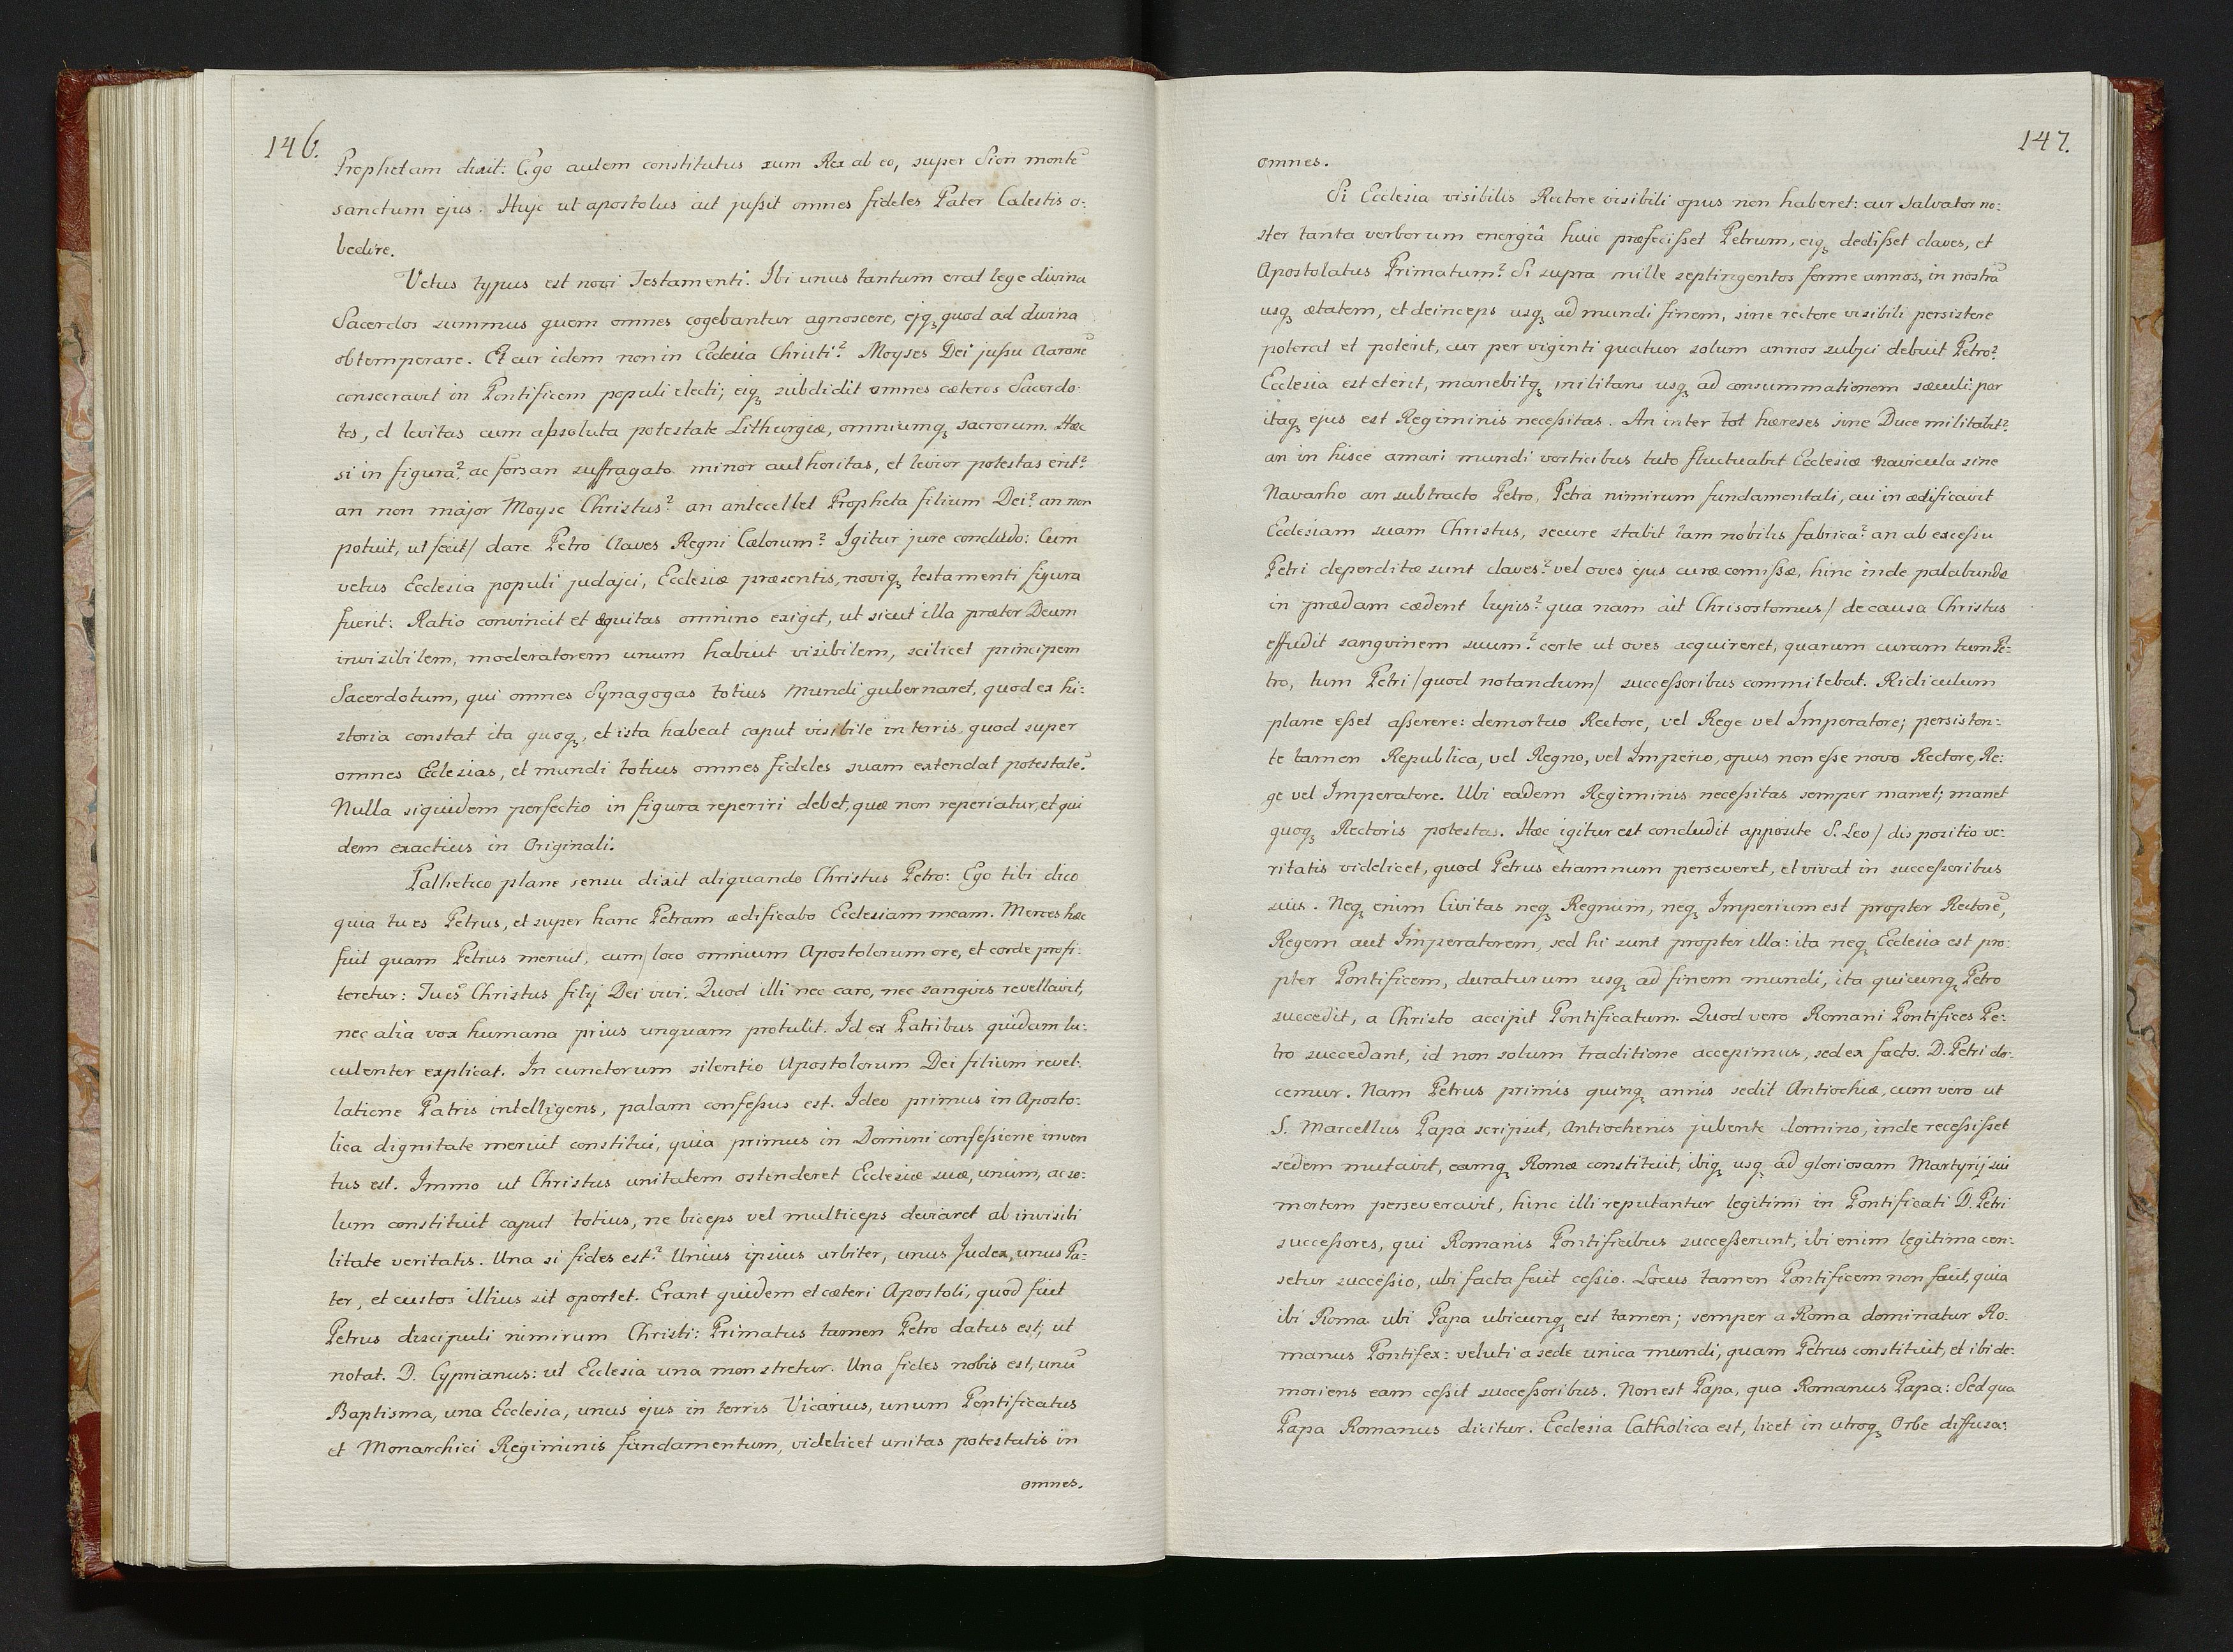 146.
Prophetam dixit: Ego autem constitutus sum Rex ab eo, super Sion monte᷃
sanctum ejus. Hujc ut apostolus ait jussit omnes fideles Pater Calestis o:
bedire.
Vetus typus est novi Testamenti: Ibi unus tantum erat lege divina
Sacerdos summus quem omnes cogebantur agnoscere, ejqꝫ quod ad divina
obtemperare. Et cur idem non in Ecclesia Christi? Moyses Dei jussu Aarone᷃
consecravit in Pontificem populi electi; eiqꝫ subdidit omnes cæteros Sacerdo:
tes, et levitas cum absoluta potestate Lithurgiæ, omniumqꝫ sacrorum. Hæc
si in figura? ac forsan suffragato minor authoritas, et levior potestas erit?
an non major Moyse Christus? an antecellet Propheta filium Dei? an non
potuit, ut fecit/ dare Petro Claves Regni Cælorum? Igitur jure concludo: Cum
vetus Ecclesia populi judajci, Ecclesiæ præsentis, noviqꝫ testamenti figura
fuerit: Ratio convincit et æquitas omnino exiget, ut sicut illa præter Deum
invisibilem, moderatorem unum habuit visibilem, scilicet principem
Sacerdotum, qui omnes Synagogas totius Mundi gubernaret, quod ex hi:
storia constat ita quoqꝫ, et ista habeat caput visibile in terris, quod super
omnes Ecclesias, et mundi totius omnes fideles suam extendat potestate᷃.
Nulla siquidem perfectio in figura reperiri debet, quæ non reperiatur, et qui
dem exactius in Originali.
Pathetico plane sensu dixit aliquando Christus Petro: Ego tibi dico
quia tu es Petrus, et super hanc Petram ædificabo Ecclesiam meam. Merces hæc
fuit quam Petrus meruit, cum/ loco omnium Apostolorum ore, et corde profi:
teretur: Tu es Christus filij Dei vivi. Quod illi nec caro, nec sangvis revellavit,
nec alia vox humana prius unquam protulit. Id ex Patribus quidam lu:
culenter explicat. In cunctorum silentio Apostolorum Dei filium revel:
latione Patris intelligens, palam confessus est. Ideo primus in Aposto:
lica dignitate meruit constitui, quia primus in Domini confessione inven
tus est. Immo ut Christus unitatem ostenderet Ecclesiæ suæ, unum, ac so:
lum constituit caput totius, ne biceps vel multiceps deviaret ab invisibi
litate veritatis. Una si fides est? Unius ipsius arbiter, unus Judex, unus Pa:
ter, et custos illius sit oportet. Erant quidem et cæteri Apostoli, quod fuit
Petrus discipuli nimirum Christi: Primatus tamen Petro datus est; ut
notat. D. Cyprianus: ut Ecclesia una monstretur. Una fides nobis est, unu᷃
Baptisma, una Ecclesia, unus ejus in terris Vicarius, unum Pontificatus
et Monarchici Regiminis fundamentum, videlicet unitas potestatis in
omnes.
147.
omnes.
Si Ecclesia visibilis Rectore visibili opus non haberet: cur Salvator no:
ster tanta verborum energiâ huic præfecisset Petrum, eiqꝫ dedisset claves, et
Apostolatus Primatum? Si supra mille septingentos ferme annos, in nostra᷃
usqꝫ ætatem, et deinceps usqꝫ ad mundi finem, sine rectore visibili persistere
poterat et poterit, cur per viginti quatuor solum annos subjci debuit Petro?
Ecclesia est et erit, manebitqꝫ militans usqꝫ ad consummationem sæculi: par
itaqꝫ ejus est Regiminis necessitas. An inter tot hæreses sine Duce militabit?
an in hisce amari mundi vorticibus tuto fluctuabit Ecclesiæ navicula sine
Navarho an subtracto Petro, Petra nimirum fundamentali, cui inædificavit
Ecclesiam suam Christus, secure stabit tam nobilis fabrica? an ab excessu
Petri deperditæ sunt claves? vel oves ejus curæ comissæ, hinc inde palabundæ
in prædam cædent lupis? qua nam ait Chrisostomus/ de causa Christus
effudit sangvinem suum? certe ut oves acquireret, quarum curam tum Pe:
tro, tum Petri /quod notandum/ successoribus commitebat. Ridiculum
plane esset asserere: demortuo Rectore, vel Rege vel Imperatore; persisten:
te tamen Republica, vel Regno, vel Imperio, opus non esse novo Rectore, Re:
ge vel Imperatore. Ubi eadem Regiminis necessitas semper manet; manet
quoqꝫ Rectoris potestas. Hæc igitur est concludit apposite S. Leo/ dispositio ve:
ritatis videlicet, quod Petrus etiamnum perseveret, et vivat in successoribus
suis. Neqꝫ enim Civitas neqꝫ Regnum, neqꝫ Imperium est propter Rectore᷃,
Regem aut Imperatorem, sed hi sunt propter illa: ita neqꝫ Ecclesia est pro:
pter Pontificem, duraturum usqꝫ ad finem mundi, ita quicunqꝫ Petro
succedit, a Christo accipit Pontificatum. Quod vero Romani Pontifices Pe:
tro succedant, id non solum traditione accepimus, sed ex facto. D. Petri do:
cemur. Nam Petrus primis quinqꝫ annis sedit Antiochiæ, cum vero ut
S. Marcellus Papa scripsit, Antiochenis jubente domino, inde recessisset
sedem mutavit, eamqꝫ Romæ constituit, ibiqꝫ usqꝫ ad gloriosam Martyrij sui
mortem perseveravit, hinc illi reputantur legitimi in Pontificati D. Petri
successores, qui Romanis Pontificibus successerunt, ibi enim legitima cen:
setur successio, ubi facta fuit cessio. Locus tamen Pontificem non facit, quia
ibi Roma ubi Papa ubicunqꝫ est tamen; semper a Roma dominatur Ro:
manus Pontifex: veluti a sede unica mundi, quam Petrus constituit, et ibi de:
moriens eam cessit successoribus. Non est Papa, qua Romanus Papa: Sed qua
Papa Romanus dicitur. Ecclesia Catholica est, licet in utroqꝫ Orbe diffusa: